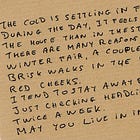 THE COLD IS SETTLING IN T
DURING THE DAY, IT FEELS
THE HOUSE THAN IN THE ST
THERE ARE MANY REASONS
WINTER FAIR, A COUPLE
BRISK WALKS IN THE
RED CHEEKS.
I TEND TO STAY AWAY F
JUST CHECKING HEADLI
TWICE A WEEK.
MAY YOU LIVE IN